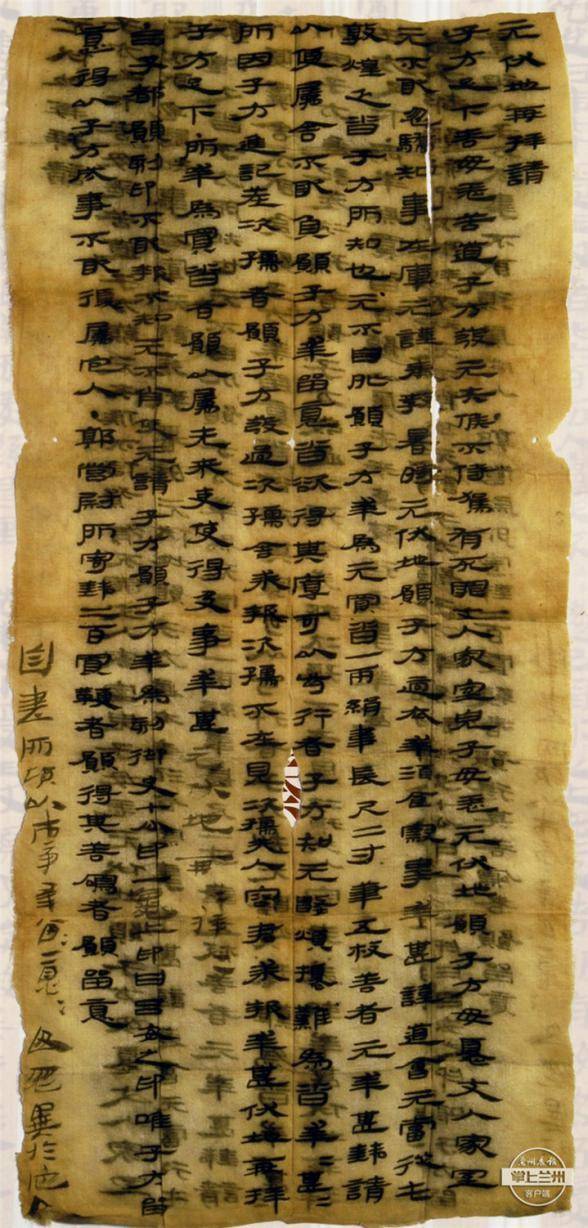 元伏地再拜請
子方足下善毋恙苦道子方發元失候不侍駕有死罪丈人家室兒子毋恙元伏地願子方毋憂丈人家室
元不敢忽驕知事在庫元謹奉教暑時元伏地願子方適衣幸酒食察事幸甚謹道會元當從屯
敦煌乏沓子方所知也元不自外願子方幸為元買沓一兩絹韋長尺二寸筆五枚善者元幸甚錢請
以便屬舍不敢負願子方幸留意沓欲得其厚可以步行者子方知元數煩擾難為沓幸=甚=
所因子方進記差次孺者願子方發過次孺舍求報次孺不在見次孺夫人容君求報幸甚伏地再拜
子方足下所幸為買沓者願以屬先來吏使得及事幸甚元伏地再拜再拜
呂子都願刻印不敢報不知元不肖使元請子方願子方幸為刻御史七分印一龜上印曰呂安之印唯子方留
意得以子方成事不敢復屬它人郭營尉所寄錢二百買鞭者願得其善鳴者願留意
自書所願以市事幸留=意=毋忽異於它人
兰州晨报
掌上兰州
客户端